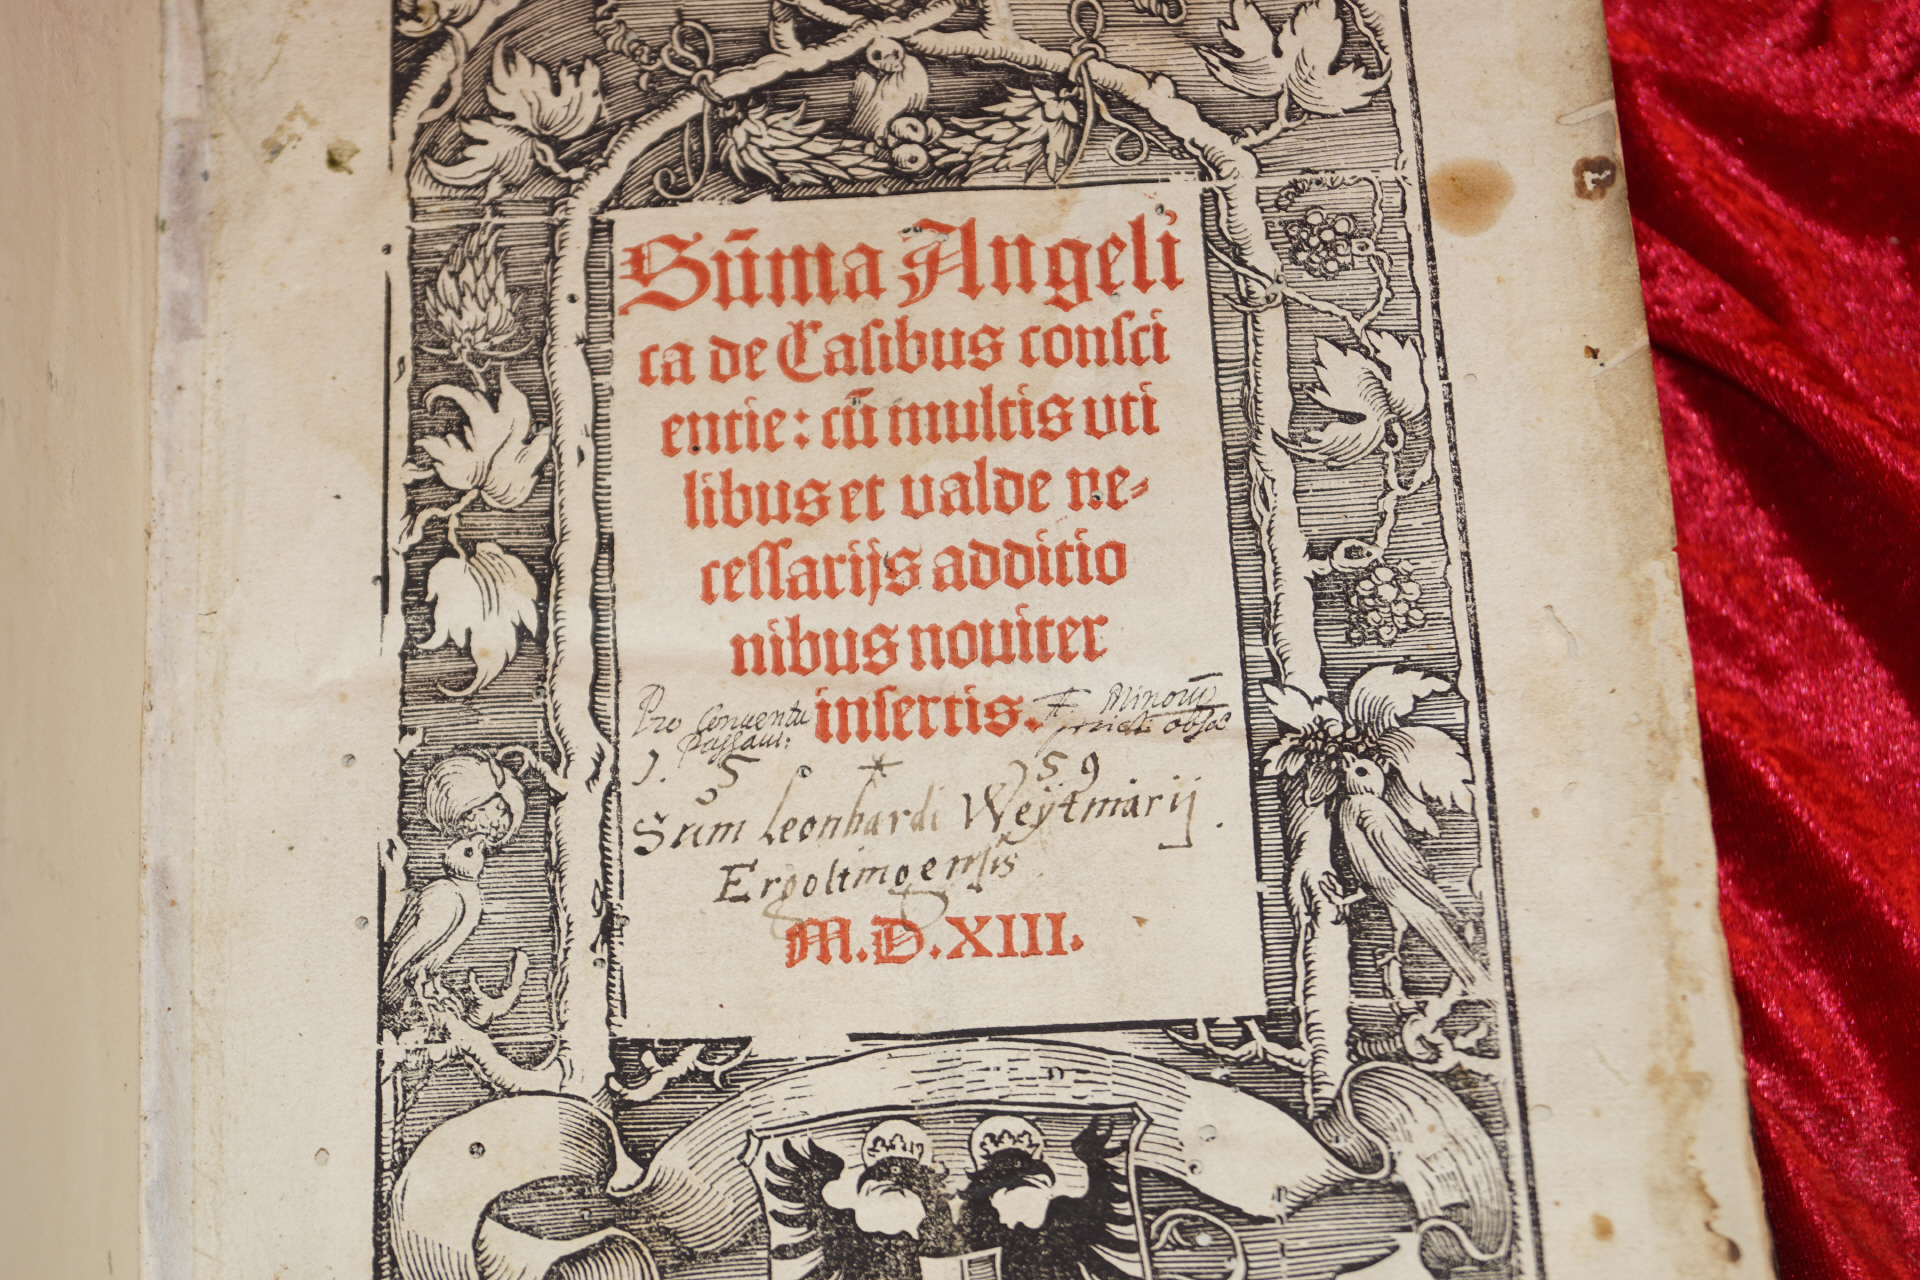 Sūma Angeli
ca de Casibus consci
entie: cū multis uti
libus et valde ne-
cessarijs additio
nibus noviter
insertis.
Pro Conventu
Passavi:
FF Minorū
strict: obser
1. 5 * 59
Sum Leonhardi Weytmarij.
Ergoltingensis
M.D.XIII.